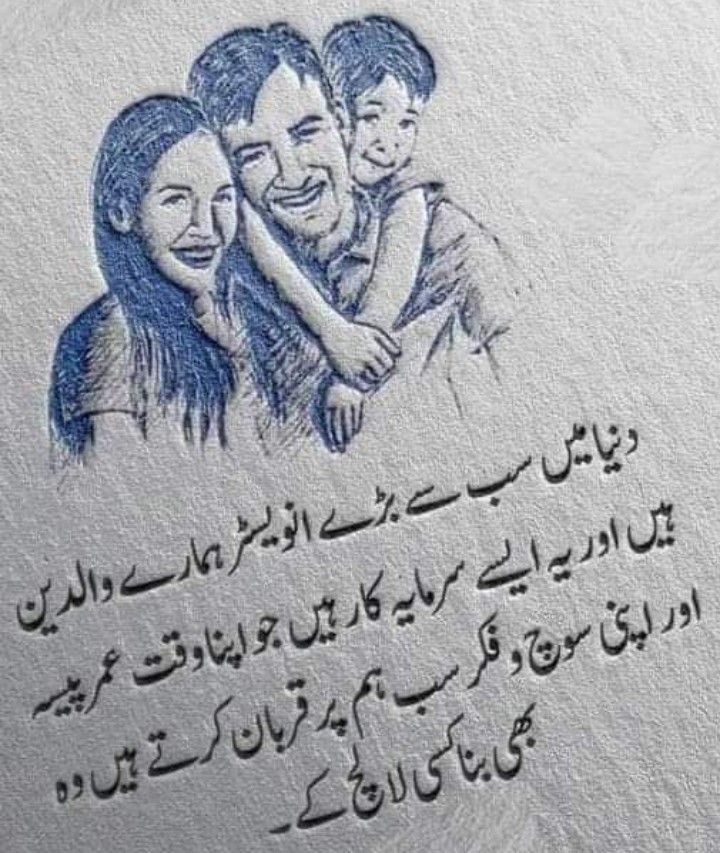 دنیا میں سب سے بڑے انویسٹر ہمارے والدین
ہیں اور یہ ایسے سرمایہ کار ہیں جو اپنا وقت عمر پیسہ
اور اپنی سوچ و فکر سب ہم پر قربان کرتے ہیں وہ
بھی بنا کسی لالچ کے۔